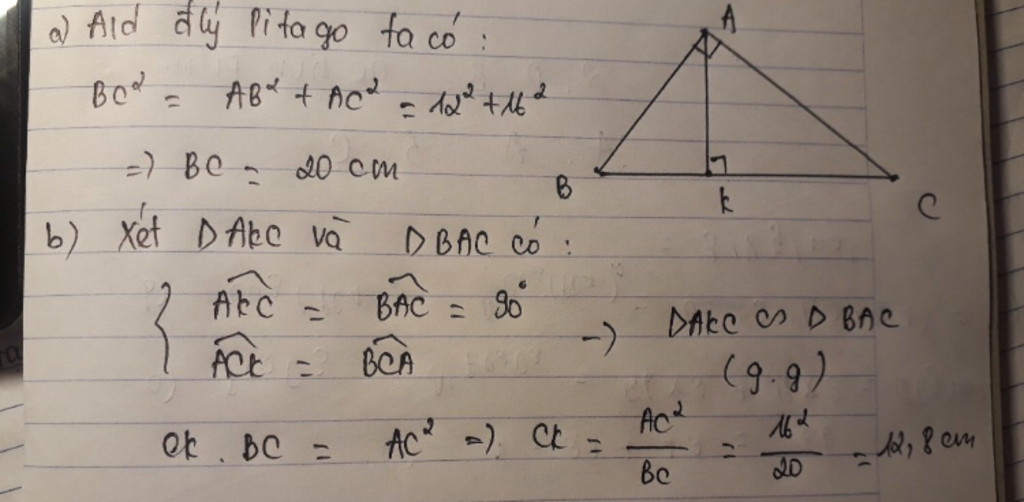 a) Ald đlý Pitago ta có :
A
BC² = AB² + AC² = 12² + 16²
=) BC = 20 cm
B
K
C
b) Xét DAKC và DBAC có :
{ AKC = BAC = 90°
ACK = BCA
-) DAKC ∽ DBAC
(g.g)
CK . BC = AC² =) CK = AC²/BC = 16²/20 = 12,8 cm